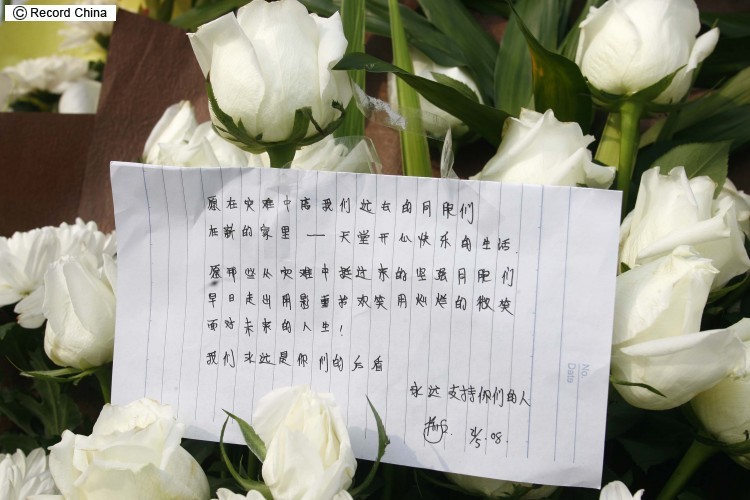 © Record China
愿在灾难中离我们远去的同胞们
在新的家里 —— 天堂开心快乐的生活.
愿那些从灾难中挺过来的坚强同胞们
早日走出阴影重拾欢笑用灿烂的微笑
面对未来的人生!
我们永远是你们的后盾
永远支持你们的人
21/5.08.
No.
Data